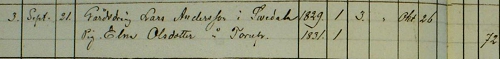 3. Sept. 21. Gårdsdräng Lars Andersson i Tvedala 1829. 1 3. " Okt 26
Pig. Elna Olsdotter i Tornp. 1831. 1
72